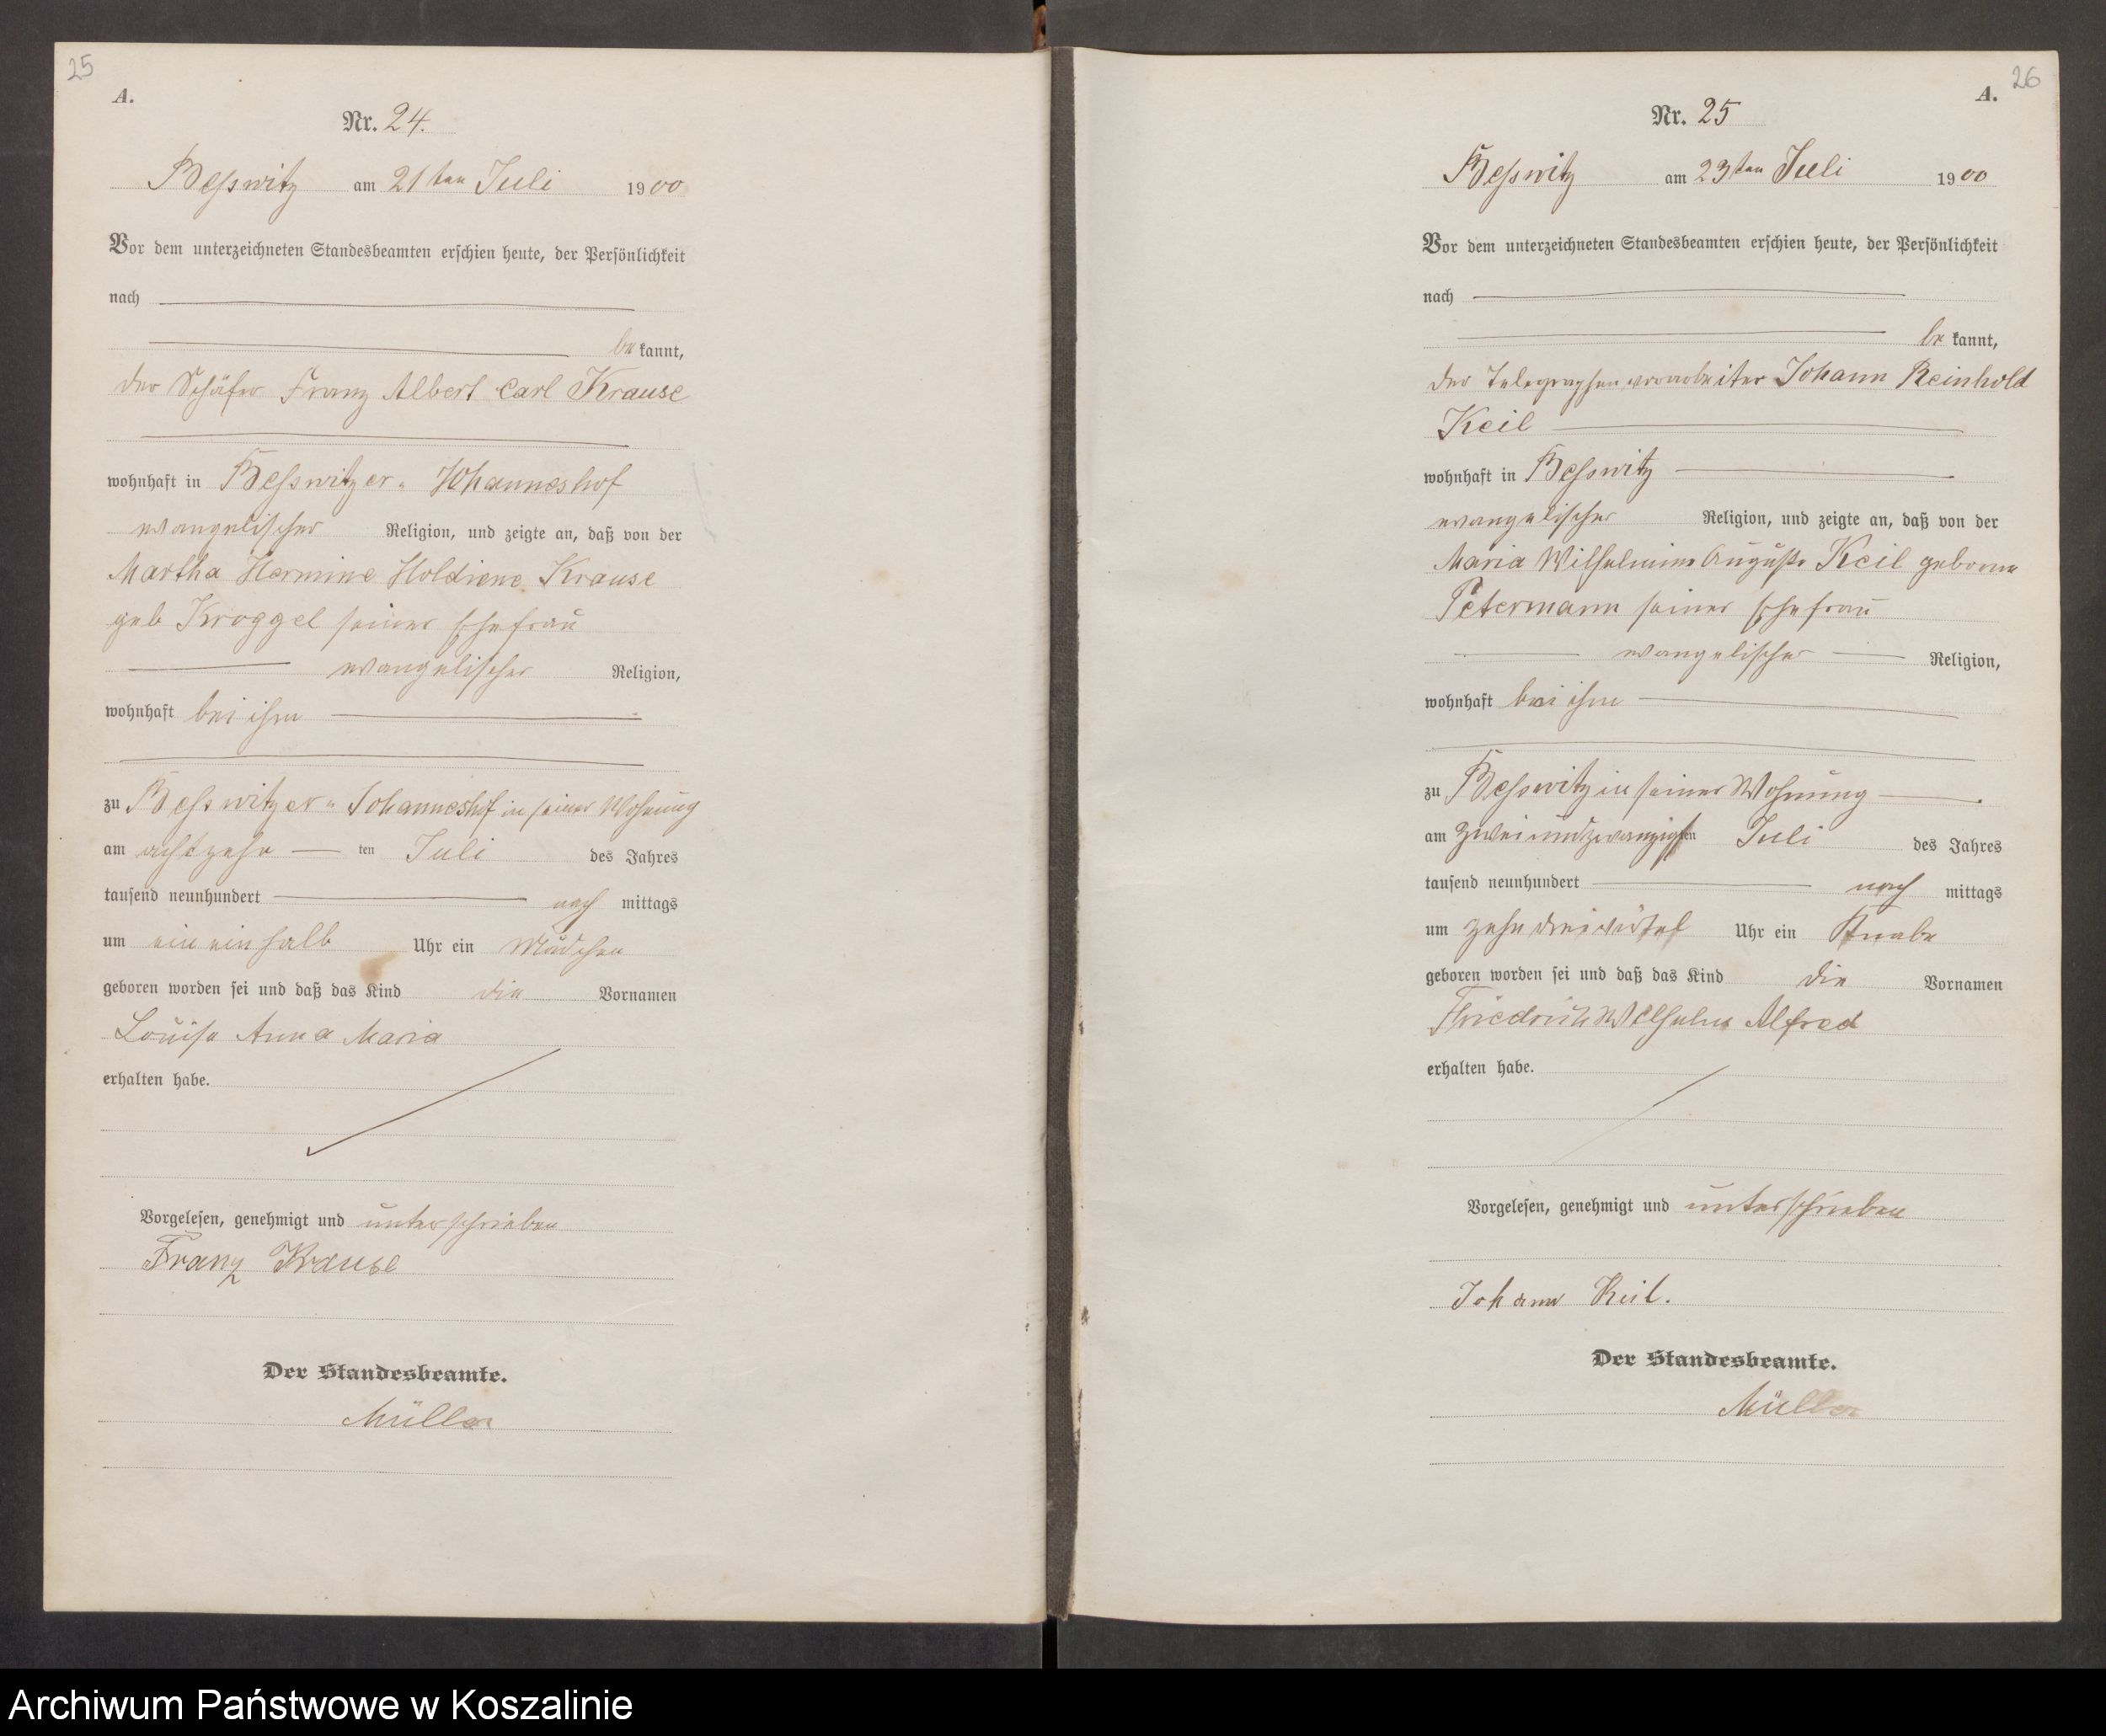 25
A.
Nr. 24.
Beßwitz am 21ten Juli 1900
Vor dem unterzeichneten Standesbeamten erschien heute, der Persönlichkeit
nach
be kannt,
der Schäfer Franz Albert Carl Krause
wohnhaft in Beßwitzer-Johanneshof
evangelischer Religion, und zeigte an, daß von der
Martha Hermine Holdiene Krause
geb Kroggel seiner Ehefrau
evangelischer Religion,
wohnhaft bei ihm
zu Beßwitzer-Johanneshof in seiner Wohnung
am achtzehn ten Juli des Jahres
tausend neunhundert nach mittags
um ein einhalb Uhr ein Mädchen
geboren worden sei und daß das Kind die Vornamen
Louise Anna Maria
erhalten habe.
Vorgelesen, genehmigt und unterschrieben
Franz Krause
Der Standesbeamte.
Müller
26
A.
Nr. 25
Beßwitz am 23ten Juli 1900
Vor dem unterzeichneten Standesbeamten erschien heute, der Persönlichkeit
nach
be kannt,
der Telegraphenvorarbeiter Johann Reinhold
Keil
wohnhaft in Beßwitz
evangelischer Religion, und zeigte an, daß von der
Maria Wilhelmine Auguste Keil geborene
Petermann seiner Ehefrau
evangelischer Religion,
wohnhaft bei ihm
zu Beßwitz in seiner Wohnung
am zweiundzwanzigsten Juli des Jahres
tausend neunhundert nach mittags
um zehn dreiviertel Uhr ein Knabe
geboren worden sei und daß das Kind die Vornamen
Friedrich Wilhelm Alfred
erhalten habe.
Vorgelesen, genehmigt und unterschrieben
Johann Keil.
Der Standesbeamte.
Müller
Archiwum Państwowe w Koszalinie